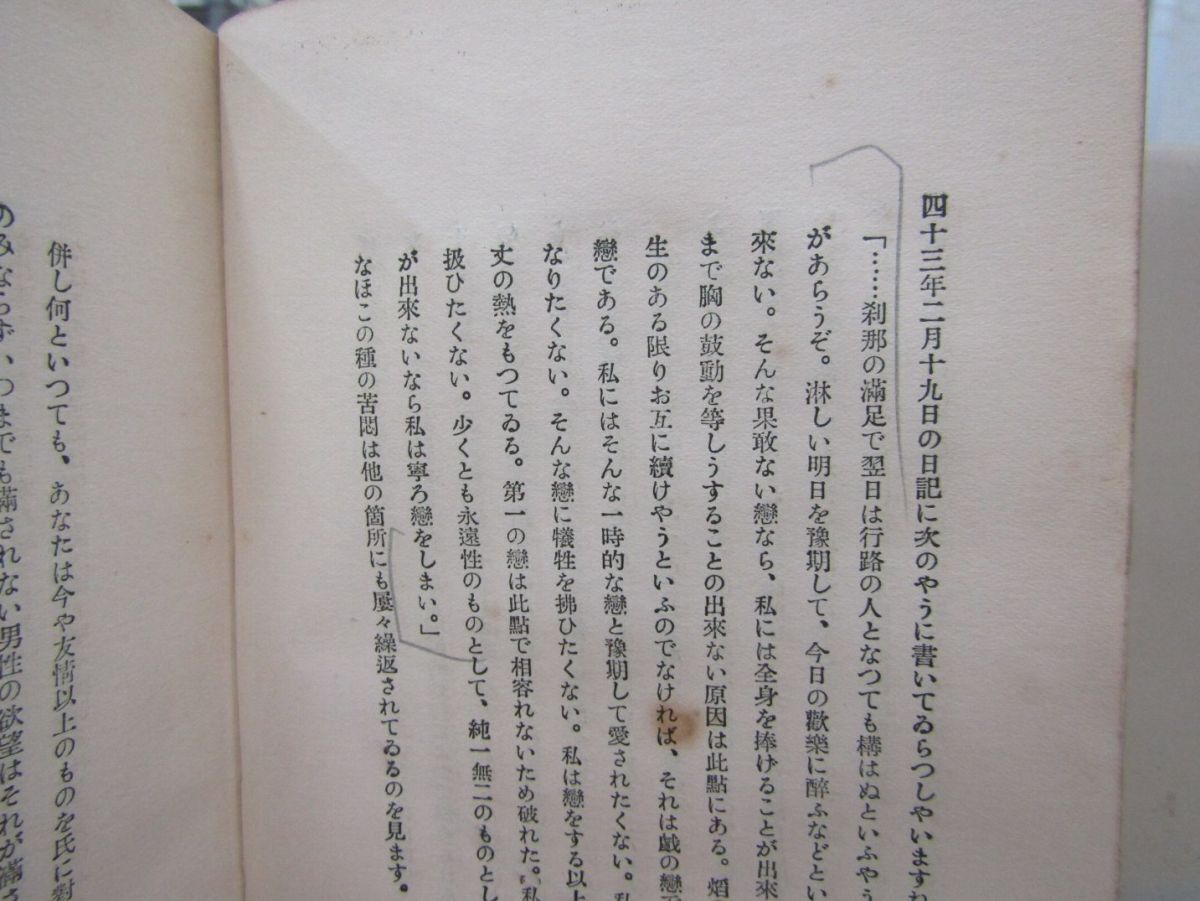 四十三年二月十九日の日記に次のやうに書いてゐらつしやいますね
「……刹那の滿足で翌日は行路の人となつても構はぬといふやう
があらうぞ。淋しい明日を豫期して、今日の歡樂に醉ふなどとい
來ない。そんな果敢ない戀なら、私には全身を捧げることが出來
まで胸の鼓動を等しうすることの出來ない原因は此點にある。焰
生のある限りお互に續けやうといふのでなければ、それは戯の戀で
戀である。私にはそんな一時的な戀と豫期して愛されたくない。私
なりたくない。そんな戀に犧牲を拂ひたくない。私は戀をする以上
丈の熱をもつてゐる。第一の戀は此點で相容れないため破れた。私
扱ひたくない。少くとも永遠性のものとして、純一無二のものとし
が出來ないなら私は寧ろ戀をしまい。」
なほこの種の苦悶は他の箇所にも屢々繰返されてゐるのを見ます。
併し何といつても、あなたは今や友情以上のものを氏に對
のみならず、いつまでも滿されない男性の欲望はそれが滿